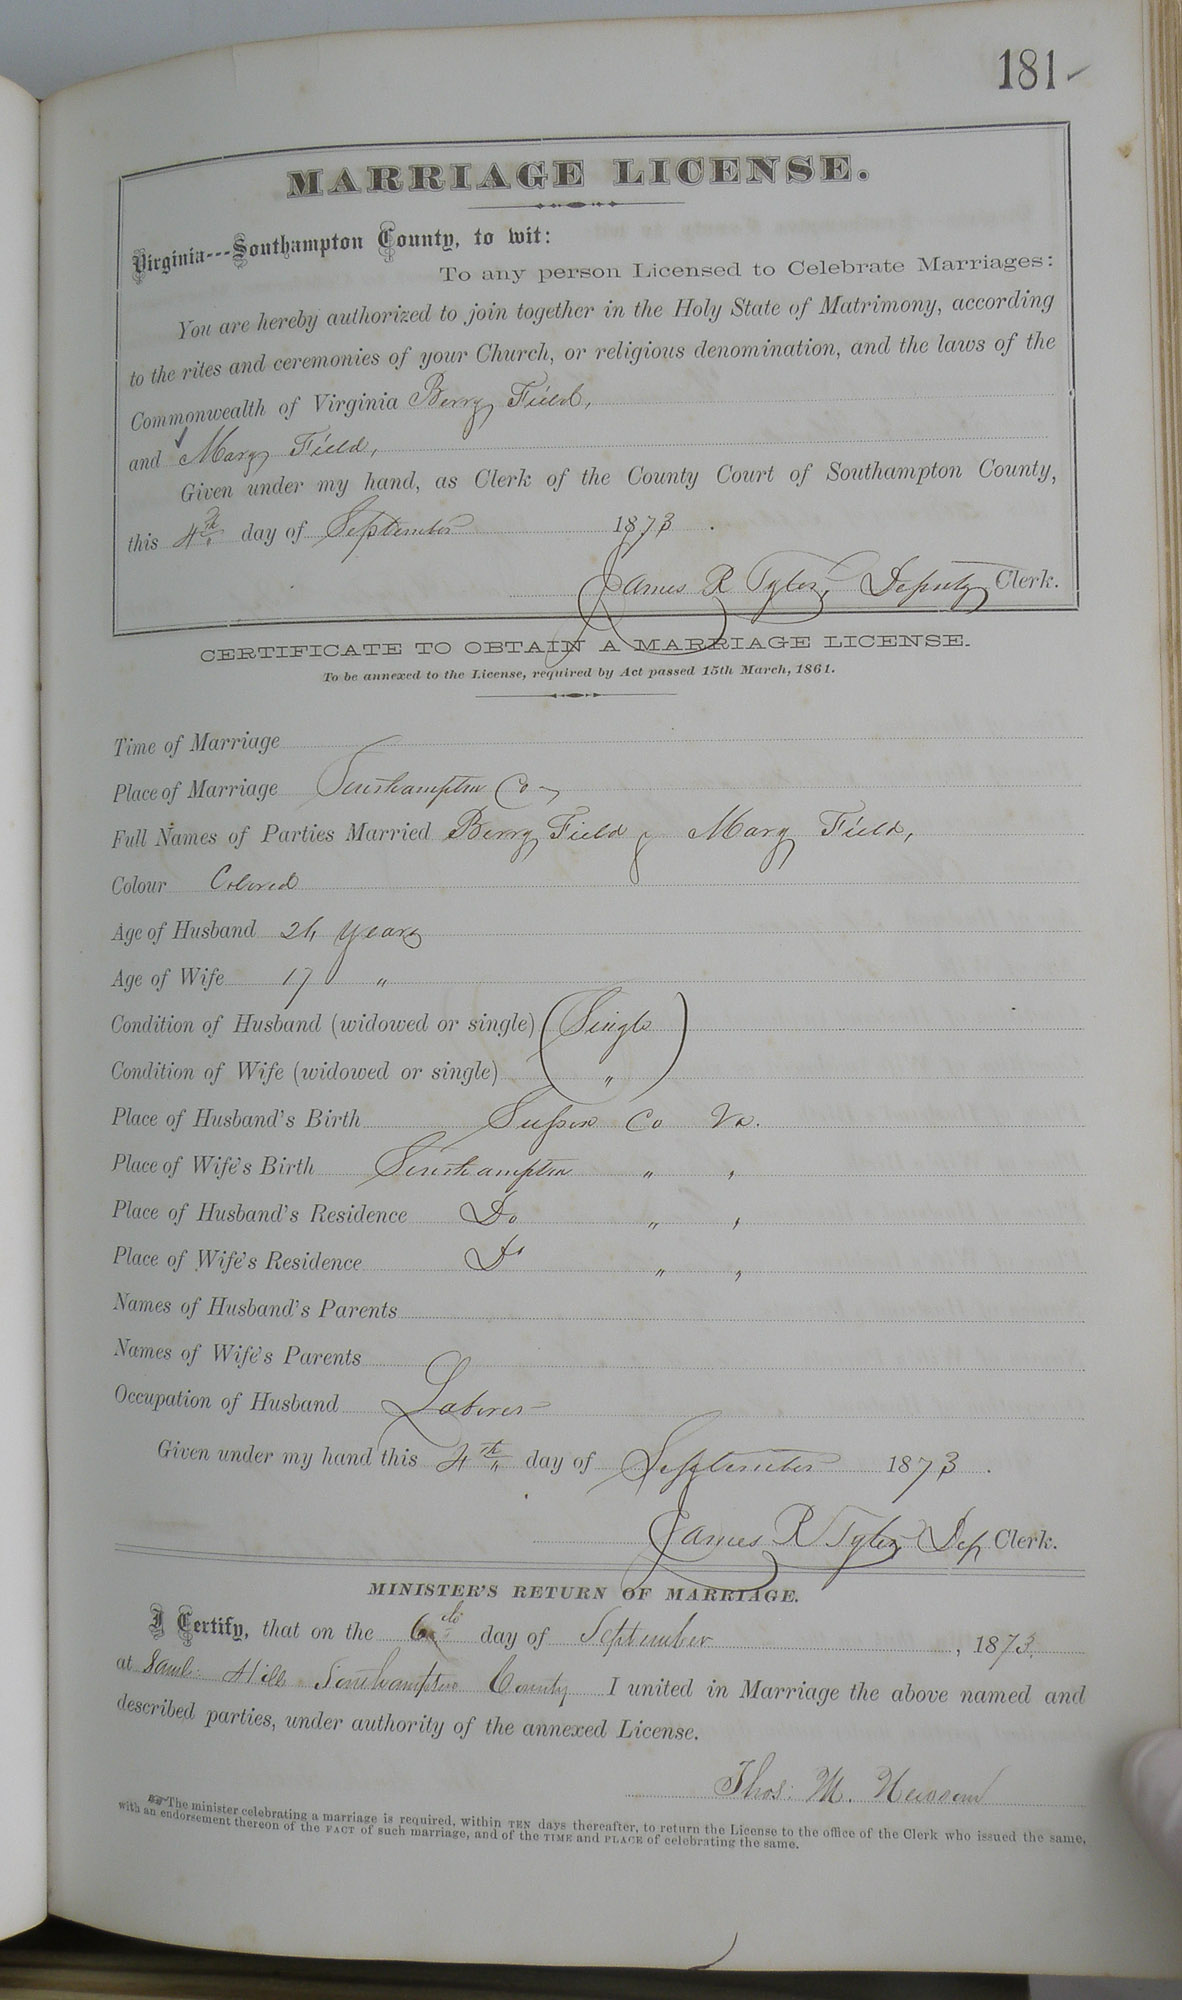 181
MARRIAGE LICENSE.
Virginia---Southampton County, to wit:
To any person Licensed to Celebrate Marriages:
You are hereby authorized to join together in the Holy State of Matrimony, according
to the rites and ceremonies of your Church, or religious denomination, and the laws of the
Commonwealth of Virginia Berry Field,
and Mary Field,
Given under my hand, as Clerk of the County Court of Southampton County,
this 4th day of September 1873.
James R Tyler, Deputy Clerk.
CERTIFICATE TO OBTAIN A MARRIAGE LICENSE.
To be annexed to the License, required by Act passed 15th March, 1861.
Time of Marriage
Place of Marriage Southampton Co
Full Names of Parties Married Berry Field & Mary Field,
Colour Colored
Age of Husband 24 years
Age of Wife 17 "
Condition of Husband (widowed or single) Single
Condition of Wife (widowed or single) "
Place of Husband's Birth Sussex Co Va.
Place of Wife's Birth Southampton " "
Place of Husband's Residence Do " "
Place of Wife's Residence Do " "
Names of Husband's Parents
Names of Wife's Parents
Occupation of Husband Laborer
Given under my hand this 4th day of September 1873.
James R Tyler Dep Clerk.
MINISTER'S RETURN OF MARRIAGE.
I Certify, that on the 6th day of September, 1873.
at Saml: Hill Southampton County I united in Marriage the above named and
described parties, under authority of the annexed License.
Thos: M.
The minister celebrating a marriage is required, within TEN days thereafter, to return the License to the office of the Clerk who issued the same,
with an endorsement thereon of the FACT of such marriage, and of the TIME and PLACE of celebrating the same.